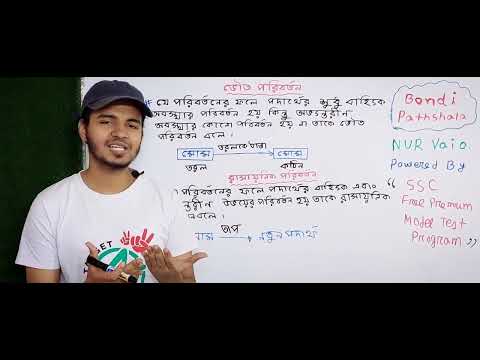 ভৌত পরিবর্তন
# যে পরিবর্তনের ফলে পদার্থের শুধু বাহ্যিক
অবস্থার পরিবর্তন হয় কিন্তু অভ্যন্তরীণ
অবস্থার কোনো পরিবর্তন হয় না তাকে ভৌত
পরিবর্তন বলে।
মোম
মোম
তরল
কঠিন
রাসায়নিক পরিবর্তন
পরিবর্তনের ফলে পদার্থের বাহ্যিক এবং
উভয়ের পরিবর্তন হয় তাকে রাসায়নিক
বলে।
তাপ
নতুন পদার্থ
Bondi
Pathshala
NUR Vaio
Powered By
“ SSC
Free Premum
Model Test
Program ”
GET